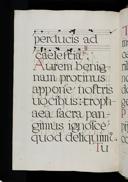 perducis ad
caelestia.
Aurem benig-
nam protinus
appone nostris
uocibus: troph-
aea sacra pan-
gimus ignosce
quod deliquim9.
Tu